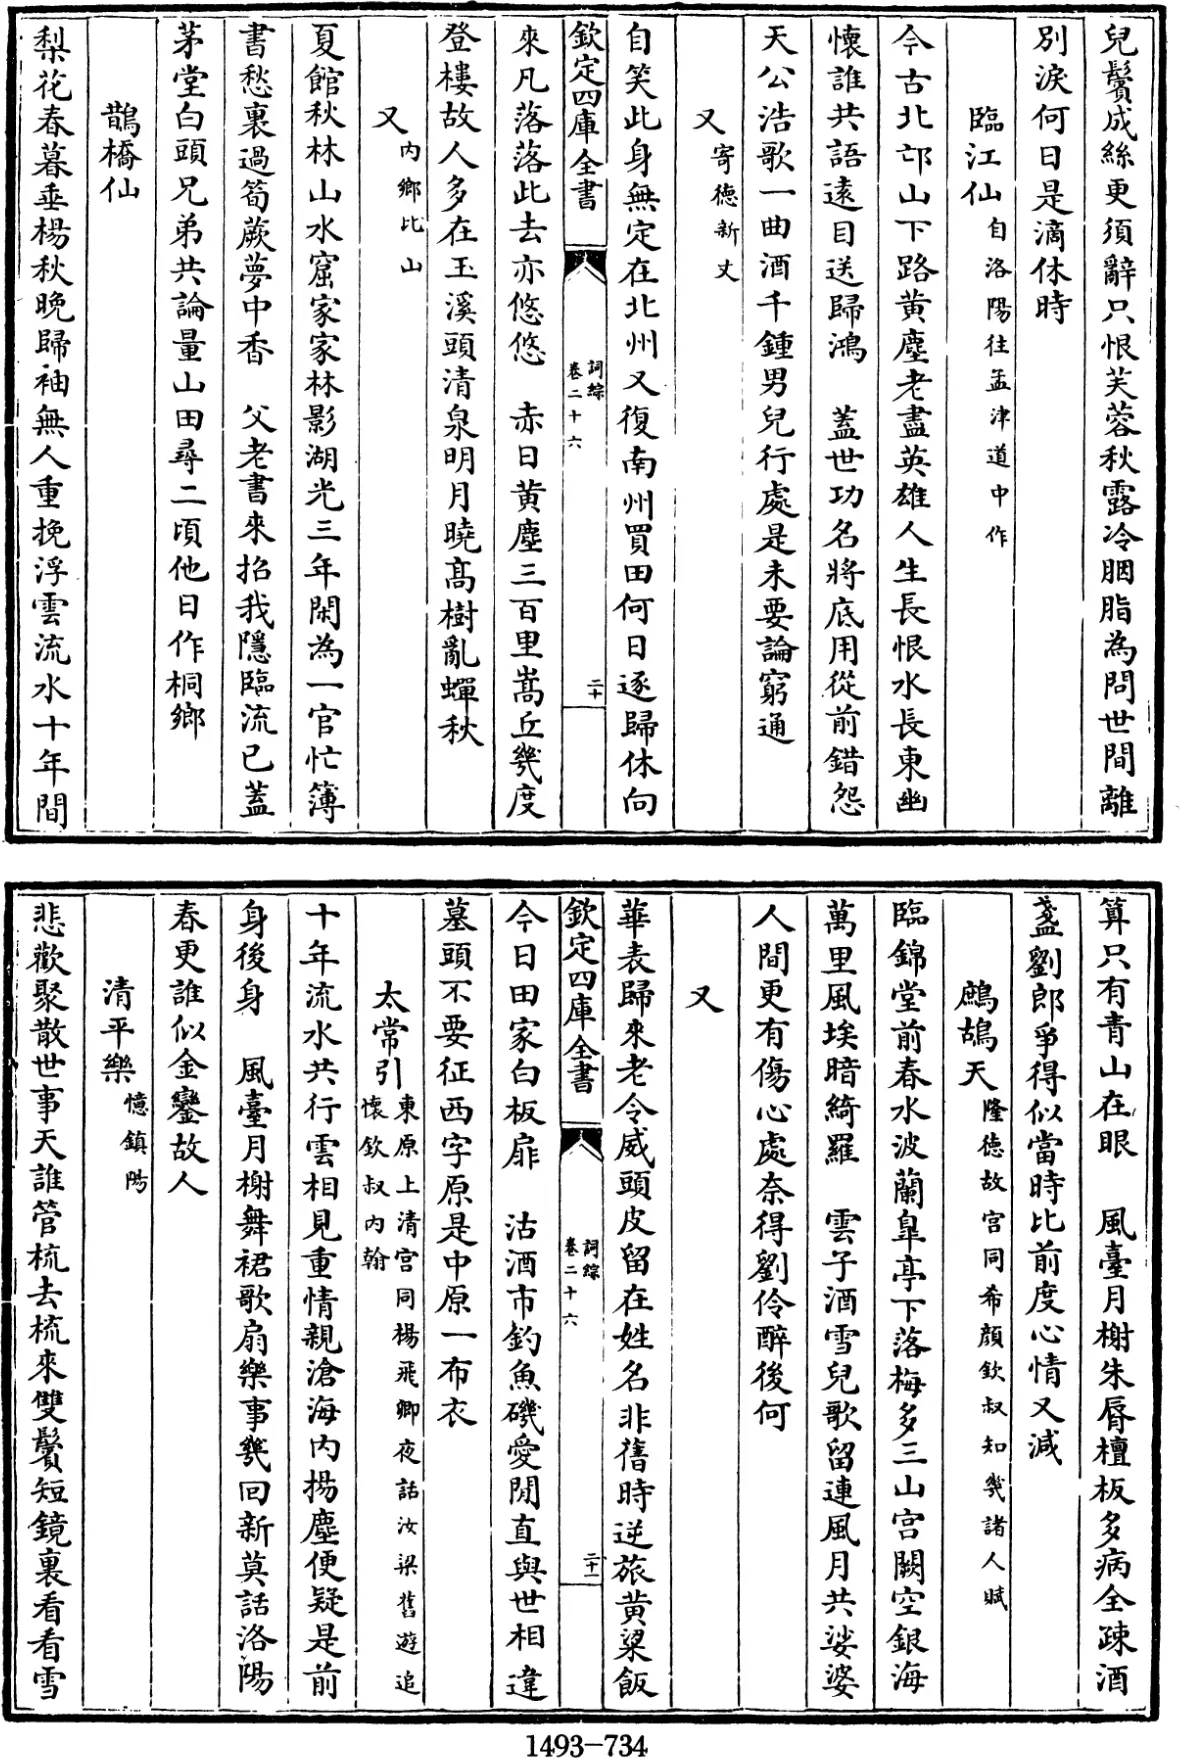 兒鬢成絲更須辭只恨芙蓉秋露冷胭脂為問世間離
別淚何日是滴休時
臨江仙自洛陽往孟津道中作
今古北邙山下路黃塵老盡英雄人生長恨水長東幽
懷誰共語遠目送歸鴻　蓋世功名將底用從前錯怨
天公浩歌一曲酒千鍾男兒行處是未要論窮通
又寄德新丈
自笑此身無定在北州又復南州買田何日遂歸休向
欽定四庫全書
詞綜
卷二十六
二十
來凡落落此去亦悠悠　赤日黃塵三百里嵩丘幾度
登樓故人多在玉溪頭清泉明月曉髙樹亂蟬秋
又内鄉比山
夏館秋林山水窟家家林影湖光三年閑為一官忙簿
書愁裏過筍蕨夢中香　父老書來招我隱臨流已蓋
茅堂白頭兄弟共論量山田尋二頃他日作桐鄉
鵲橋仙
梨花春暮垂楊秋晚歸袖無人重挽浮雲流水十年間
算只有青山在眼　風臺月榭朱脣檀板多病全疎酒
盞劉郎爭得似當時比前度心情又減
鷓鴣天隆德故宫同希顔欽叔知幾諸人賦
臨錦堂前春水波蘭臯亭下落梅多三山宫闕空銀海
萬里風埃暗綺羅　雲子酒雪兒歌留連風月共婆娑
人間更有傷心處奈得劉伶醉後何
又
華表歸來老令威頭皮留在姓名非舊時逆旅黃粱飯
欽定四庫全書
詞綜
卷二十六
二十一
今日田家白板扉　沽酒市釣魚磯愛閒直與世相違
墓頭不要征西字原是中原一布衣
太常引東原上清宫同楊飛卿夜話汝梁舊遊追
懷欽叔内翰
十年流水共行雲相見重情親滄海内揚塵便疑是前
身後身　風臺月榭舞裙歌扇樂事幾回新莫話洛陽
春更誰似金鑾故人
清平樂憶鎮陽
悲歡聚散世事天誰管梳去梳來雙鬢短鏡裏看看雪
1493—734